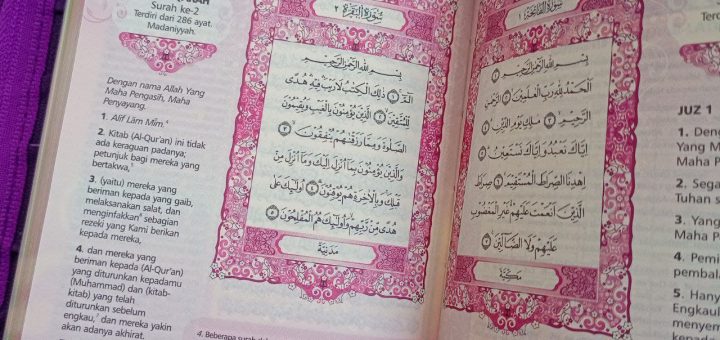 Surah ke-2
Terdiri dari 286 ayat.
Madaniyyah.
Dengan nama Allah Yang
Maha Pengasih, Maha
Penyayang.
1. Alif Lām Mīm.⁴
2. Kitab (Al-Qur'an) ini tidak
ada keraguan padanya;
petunjuk bagi mereka yang
bertakwa,⁵
3. (yaitu) mereka yang
beriman kepada yang gaib,
melaksanakan salat, dan
menginfakkan⁶ sebagian
rezeki yang Kami berikan
kepada mereka,
4. dan mereka yang
beriman kepada (Al-Qur'an)
yang diturunkan kepadamu
(Muhammad) dan (kitab-
kitab) yang telah
diturunkan sebelum
engkau,⁷ dan mereka yakin
akan adanya akhirat.
4. Beberapa surah
سُوْرَةُ الْبَقَرَةِ ٢
بِسْمِ اللّٰهِ الرَّحْمٰنِ الرَّحِيْمِ
الۤمّۤ ۝١ ذٰلِكَ الْكِتٰبُ لَا رَيْبَ فِيْهِ هُدًى
لِّلْمُتَّقِيْنَ ۝٢ الَّذِيْنَ يُؤْمِنُوْنَ بِالْغَيْبِ وَيُقِيْمُوْنَ
الصَّلٰوةَ وَمِمَّا رَزَقْنٰهُمْ يُنْفِقُوْنَ ۝٣
وَالَّذِيْنَ يُؤْمِنُوْنَ بِمَآ اُنْزِلَ اِلَيْكَ وَمَآ اُنْزِلَ مِنْ
قَبْلِكَ وَبِالْاٰخِرَةِ هُمْ يُوْقِنُوْنَ ۝٤ اُولٰۤىِٕكَ عَلٰى
هُدًى مِّنْ رَّبِّهِمْ وَاُولٰۤىِٕكَ هُمُ الْمُفْلِحُوْنَ ۝٥
مَدَنِيَّة
سُوْرَةُ الْفَاتِحَةِ ١
بِسْمِ اللّٰهِ الرَّحْمٰنِ الرَّحِيْمِ ۝١
اَلْحَمْدُ لِلّٰهِ رَبِّ الْعٰلَمِيْنَ ۝٢ الرَّحْمٰنِ
الرَّحِيْمِ ۝٣ مٰلِكِ يَوْمِ الدِّيْنِ ۝٤
اِيَّاكَ نَعْبُدُ وَاِيَّاكَ نَسْتَعِيْنُ ۝٥
اِهْدِنَا الصِّرَاطَ الْمُسْتَقِيْمَ ۝٦ صِرَاطَ
الَّذِيْنَ اَنْعَمْتَ عَلَيْهِمْ غَيْرِ الْمَغْضُوْبِ
عَلَيْهِمْ وَلَا الضَّاۤلِّيْنَ ۝٧
مَكِّيَّة
JUZ 1
1. Den
Yang M
Maha P
2. Sega
Tuhan s
3. Yang
Maha P
4. Pemi
pembal
5. Hany
Engkau
menyem